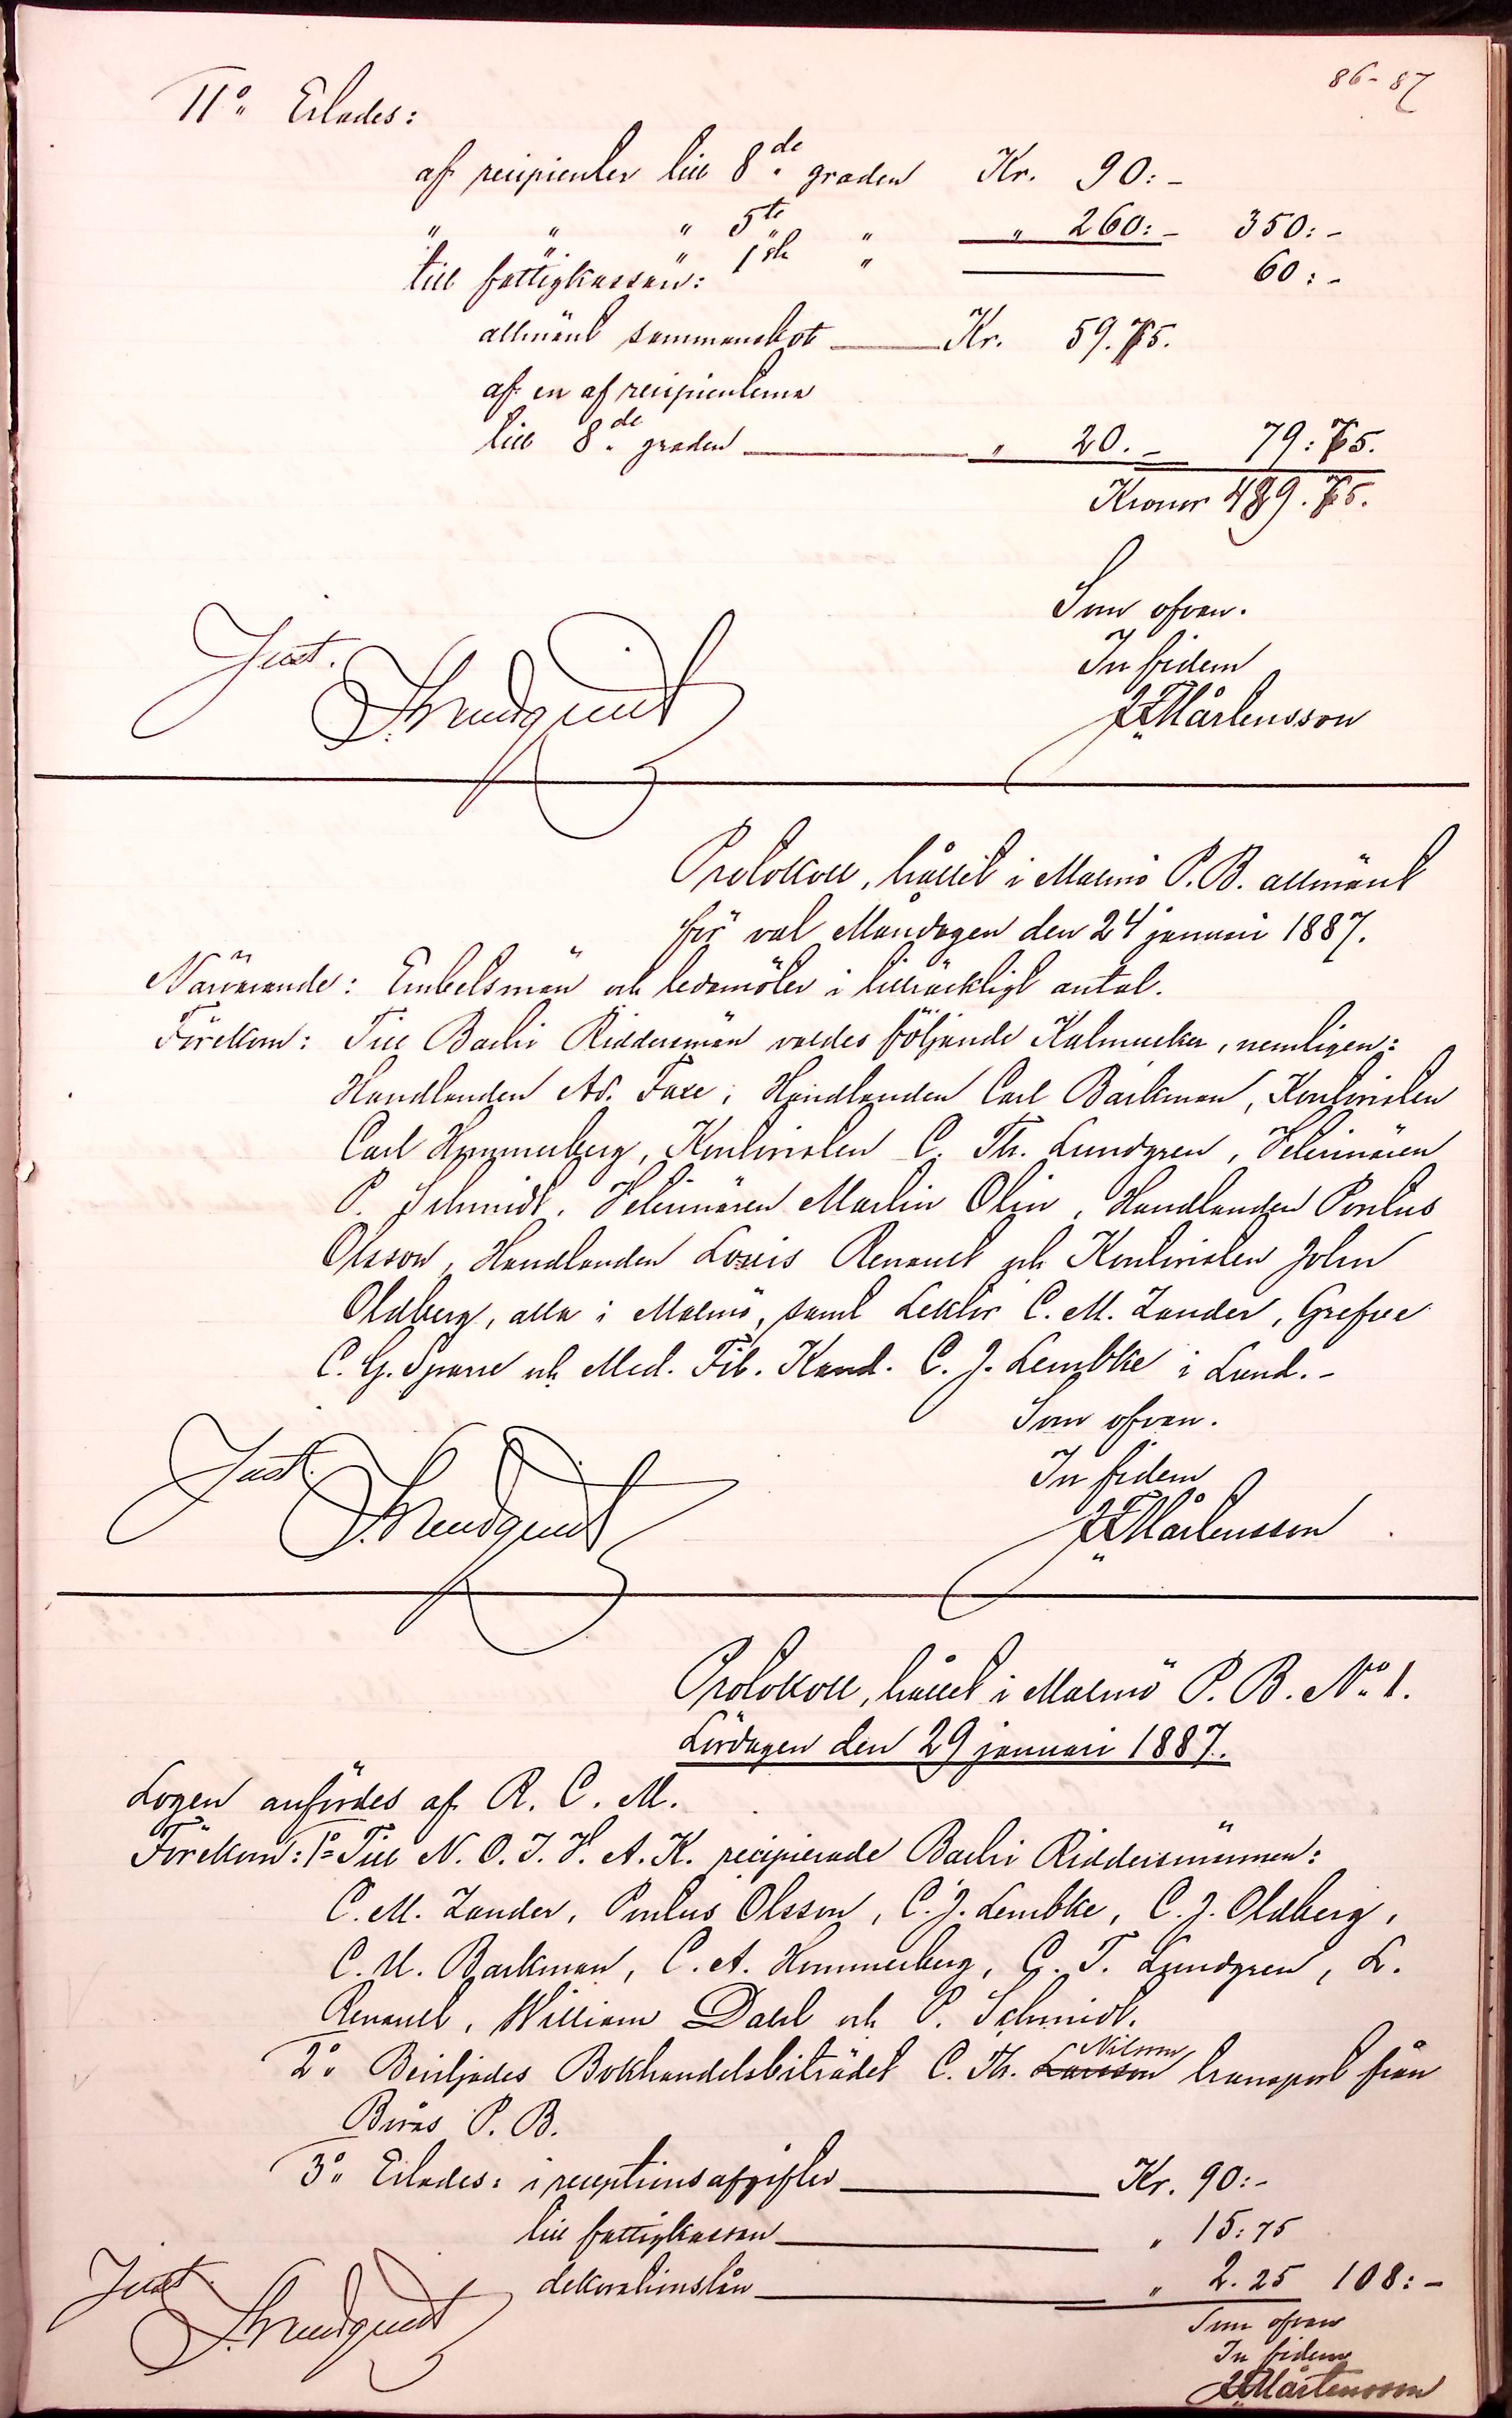 86-87
11º Erlades:
af recipienter till 8de graden Kr. 90:-
" " " 5te " " 260:- 350:-
" " 1sta " 60:-
till fattigkassan:
allmänt sammanskot Kr. 59.75.
af en af recipienterna
till 8de graden " 20.- 79:75.
Kronor 489.75.
Som ofvan.
In fidem
Just.
Mårtensson
Protokoll, hållet i Malmö P. B. allmänt
för val Måndagen den 24 januari 1887.
Närvarande: Embetsmän och ledamöter i tillräckligt antal.
Förekom: Till Bachi Riddersmän valdes följande Kalmucker, nemligen:
Handlanden Ad. Faxe, Handlanden Carl Barkman, Kontoristen
Carl Hammerberg, Kontoristen C. Th. Lundgren, Veterinären
P. Schmidt, Veterinären Martin Olin, Handlanden Pontus
Olsson, Handlanden Louis Renault och Kontoristen John
Oldberg, alla i Malmö, samt Lektor C. M. Zander, Grefve
C. G. Sparre och Med. Fil. Kand. C. J. Lembke i Lund.-
Som ofvan.
In fidem
Just.
Mårtensson
Protokoll, hållet i Malmö P. B. Nº 1.
Lördagen den 29 januari 1887.
Logen anfördes af R. C. M.
Förekom: 1º Till N. O. I. V. A. K. recipierade Bachi Riddersmännen:
C. M. Zander, Pontus Olsson, C. J. Lembke, C. J. Oldberg,
C. U. Barkman, C. A. Hammerberg, C. T. Lundgren, L.
Renault, William Dahl och P. Schmidt.
Nilsson
2º Beviljades Bokhandelsbiträdet C. Th. Larsson transport från
Borås P. B.
3º Erlades: i receptionsafgifter Kr. 90:-
till fattigkassan " 15:75
dekorationslån " 2.25 108:-
Just.
Som ofvan
In fidem
Mårtensson